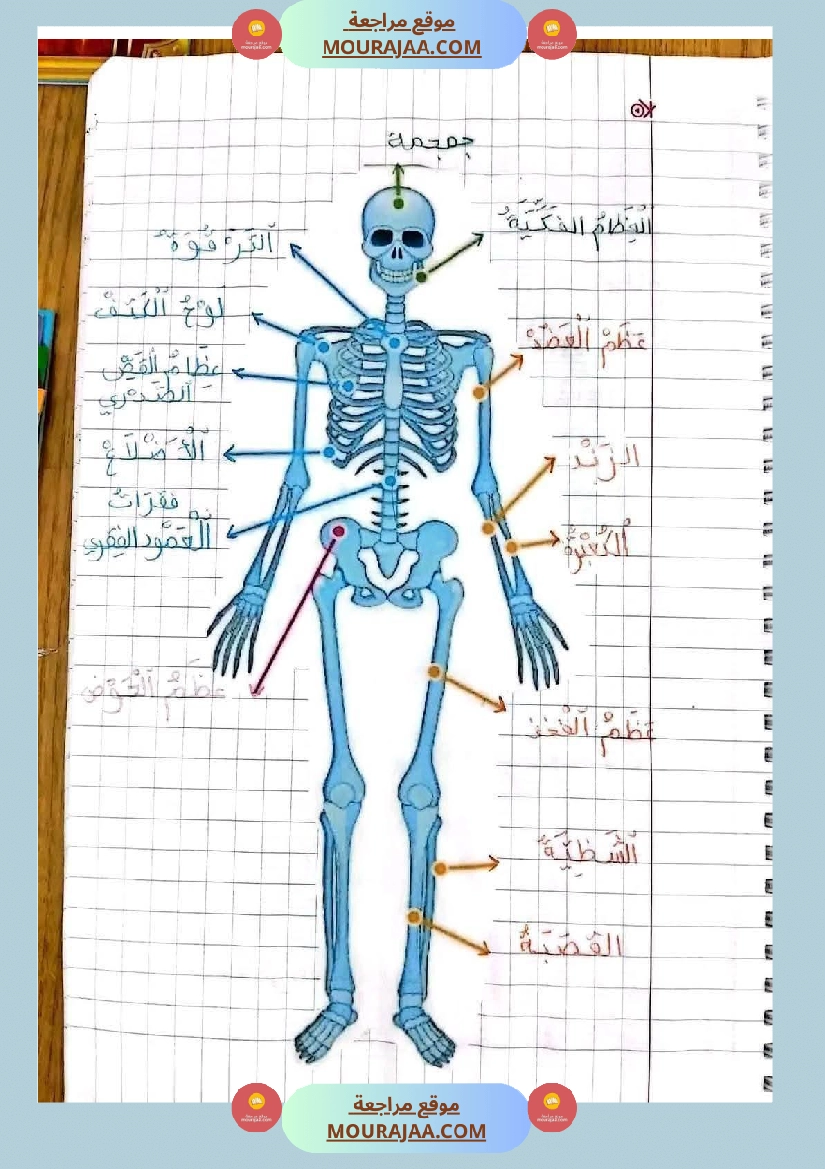 موقع مراجعة
MOURAJAA.COM
جمجمة
العِظَامُ الفَكِّيَّةُ
اَلتَّرْقُوَةُ
لَوْحُ الْكَتِفْ
عَظْمُ الْعَضُدْ
عِظَامُ القَفَصْ
الصَّدْرِي
اَلْأَضْلَاعْ
الزَنْدْ
فَقَرَاتُ
الْعَمُودِ الفِقَرِي
الْكُعْبُرَةُ
عَظْمُ الْحَوْضِ
عَظْمُ الْفَخِذِ
الشَّظِيَّةُ
القَصَبَةُ
موقع مراجعة
MOURAJAA.COM